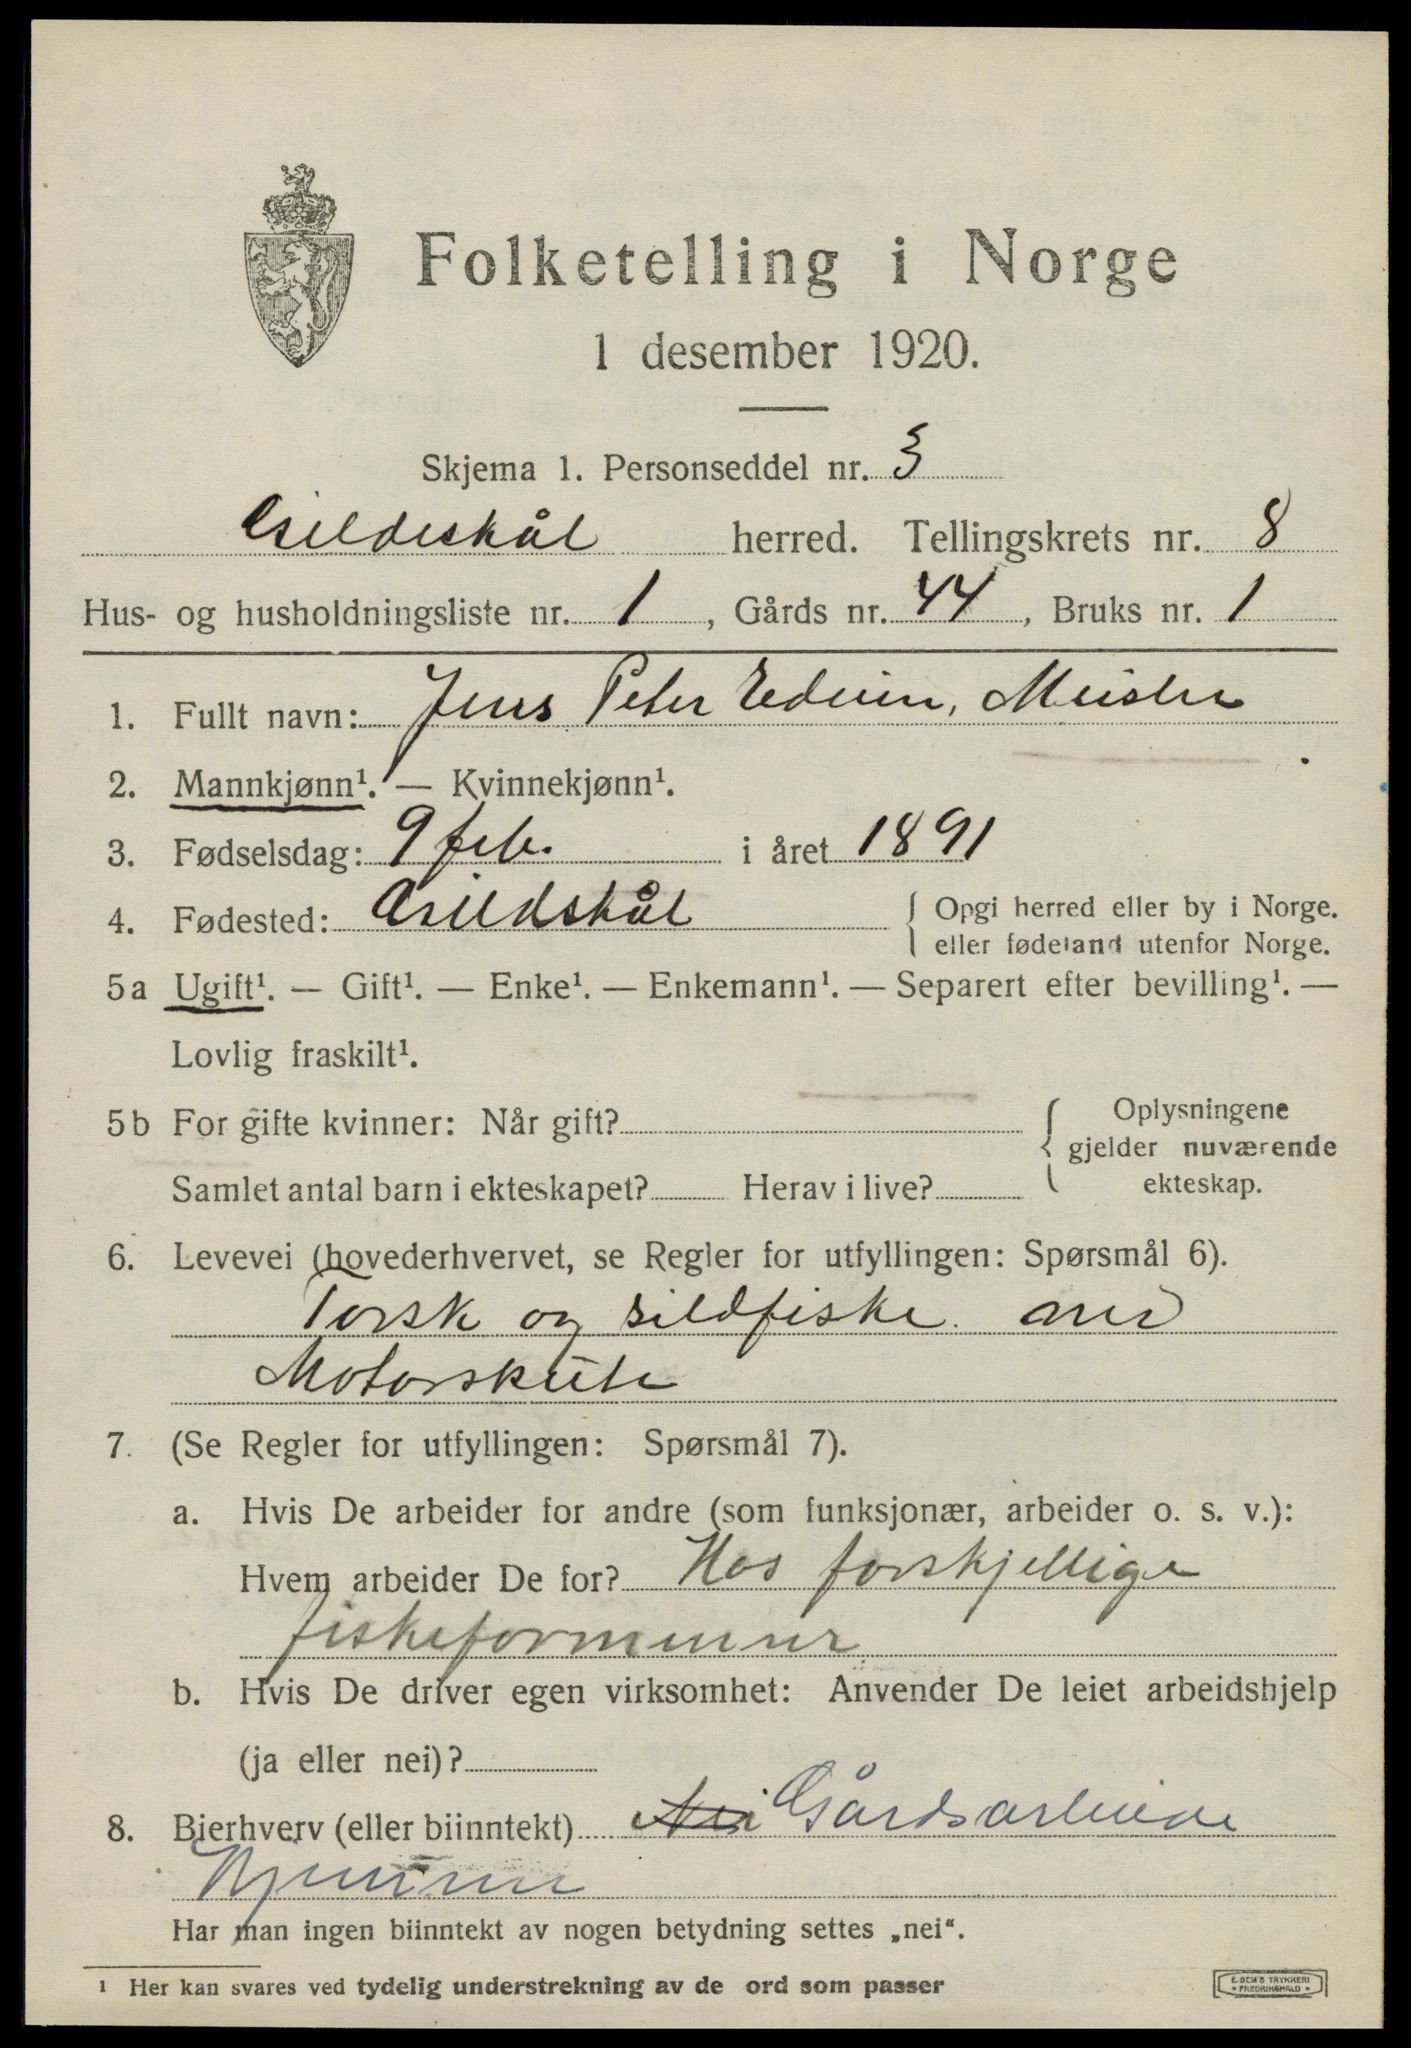 Folketelling i Norge
1 desember 1920.
Skjema 1. Personseddel nr. 3
Gildeskål herred. Tellingskrets nr. 8
Hus- og husholdningsliste nr. 1, Gårds nr. 44, Bruks nr. 1
1. Fullt navn: Jens Peter Edvin, Meisler
2. Mannkjønn¹. — Kvinnekjønn¹.
3. Fødselsdag: 9 feb. i året 1891
4. Fødested: Gildskål { Opgi herred eller by i Norge.
eller fødeland utenfor Norge.
5a Ugift¹. — Gift¹. — Enke¹. — Enkemann¹. — Separert efter bevilling¹. —
Lovlig fraskilt¹.
5b For gifte kvinner: Når gift?
Samlet antal barn i ekteskapet? Herav i live?
{ Oplysningene
gjelder nuværende
ekteskap.
6. Levevei (hovederhvervet, se Regler for utfyllingen: Spørsmål 6).
Torsk og sildfiske med
Motorskute
7. (Se Regler for utfyllingen: Spørsmål 7).
a. Hvis De arbeider for andre (som funksjonær, arbeider o. s. v.):
Hvem arbeider De for? Hos forskjellige
fiskeformenner
b. Hvis De driver egen virksomhet: Anvender De leiet arbeidshjelp
(ja eller nei)?
8. Bierhverv (eller biinntekt) Nei Gårdsarbeide
Hjemme
Har man ingen biinntekt av nogen betydning settes „nei“.
¹ Her kan svares ved tydelig understrekning av de ord som passer
E. SEM'S TRYKKERI
* FREDRIKSHALD *